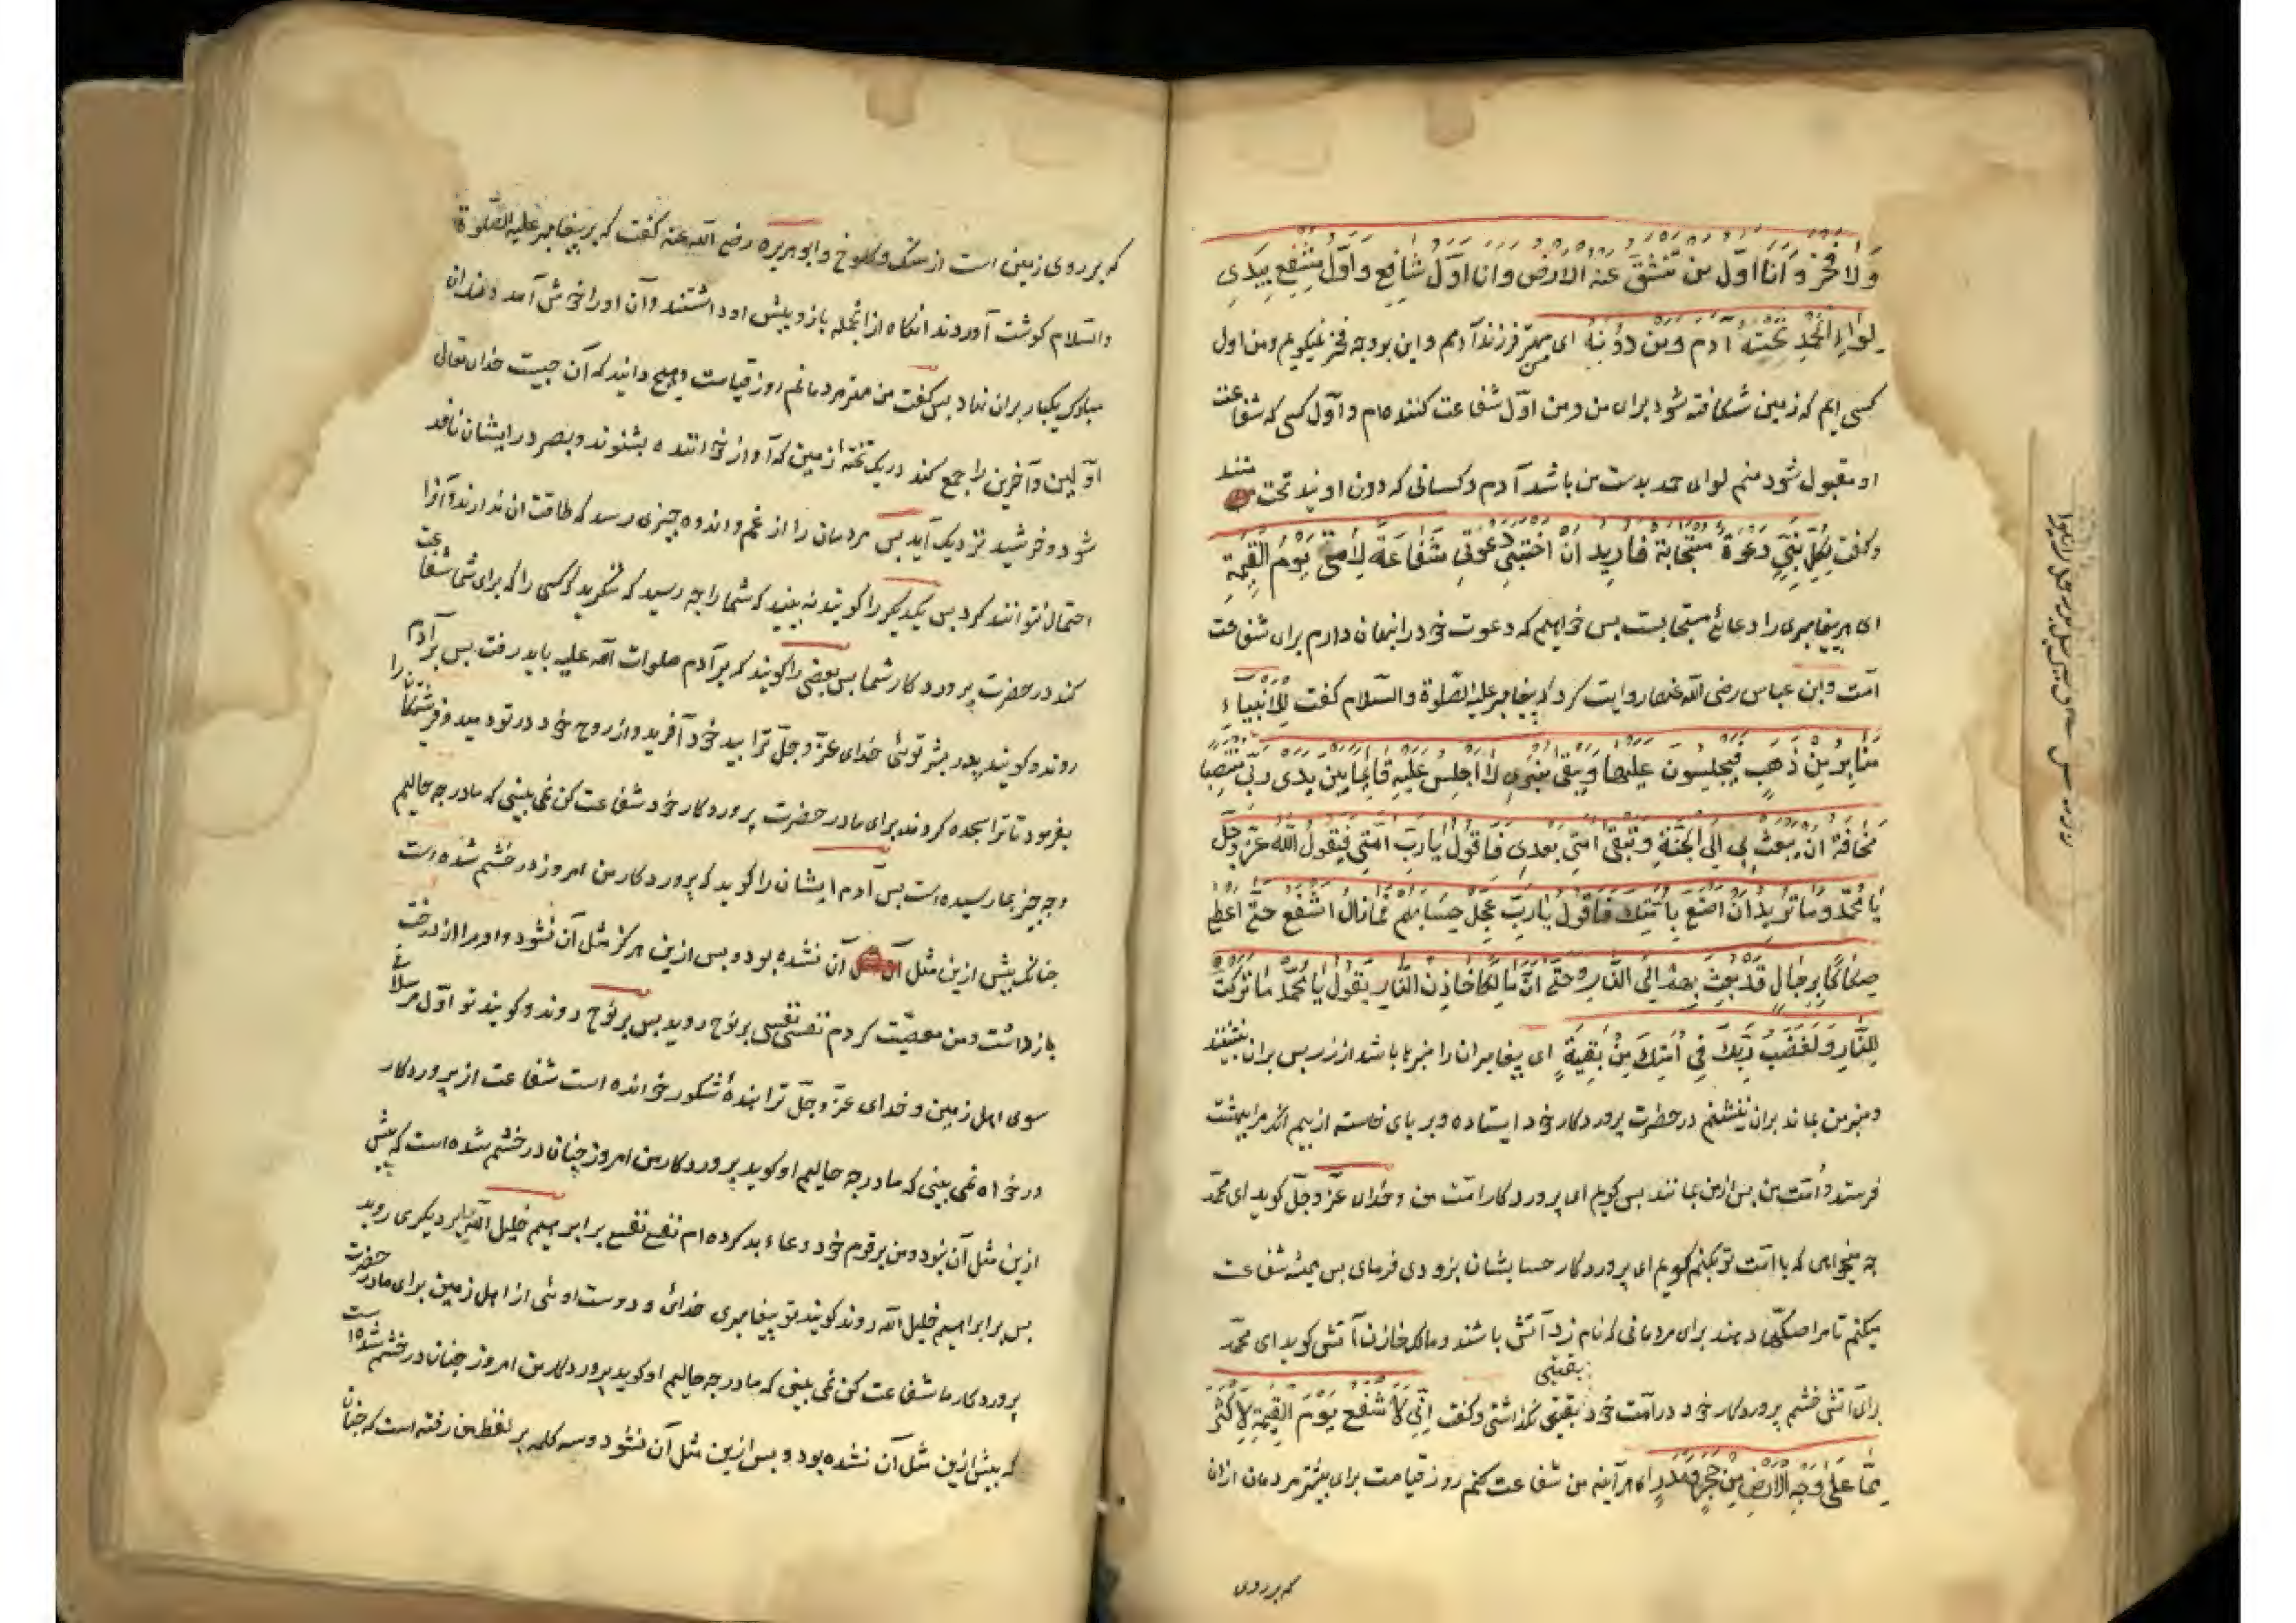 ولا فخر وانا اول من تنشق عنه الارض وانا اول شافع واول مشفع بیدی
لواء الحمد تحته آدم ومن دونه ای مهتر فرزند آدمم واین بوجه فخر نمیکویم ومن اول
کسی ایم که زمین شکافته شود برای من ومن اوّل شفاعت کننده ام واوّل کسی که شفاعت
او مقبول شود منم لوای حمد بدست من باشد آدم وکسانی که دون اویند تحت
وکفت لکل نبی دعوة مستجابة فارید ان اختبی دعوتی شفاعة لامتی یوم القیمة
ای هر پیغامبری را دعائی مستجابست بس خواهم که دعوت خود را نهان دارم برای شفاعت
امت وابن عباس رضی الله عنهما روایت کرد که پیغامبر علیه الصّلوة والسّلام کفت للانبیاء
منابر من ذهب فیجلسون علیها ویبقی منبری لا اجلس علیه قائما بین یدی ربی منتصبا
مخافة ان یبعث بی الی الجنة وتبقی امتی بعدی فاقول یارب امتی فیقول الله عزّ وجلّ
یا محمّد وما ترید ان اصنع بامتک فاقول یارب عجل حسابهم فما زال اشفع حتی اعطی
صکاکا برجال قد بعث بهم الی النار وحتی ان مالکا خازن النار یقول یا محمّد ما ترکت
للنار ولغضب ربک فی امتک من بقیة ای پیغامبران را منبرها باشد از زر بس بران بنشینند
ومنبر من بماند بران ننشینم در حضرت پروردکار خود ایستاده وبر پای خاسته از بیم انکه مرا ببهشت
فرستد وامّت من بس از من بمانند بس کویم ای پروردکار امّت من وخدای عزّ وجلّ کوید ای محمّد
چه میخواهی که با امّت تو بکنم کویم ای پروردکار حساب ایشان بزودی فرمای بس همیشه شفاعت
میکنم تا مرا صکّها دهند برای مردمانی که نام زد آتش باشند ومالک خازن آتش کوید ای محمّد
برای آتش خشم پروردکار خود در امّت خود بقیتی نکذاشتی وکفت انی لاشفع یوم القیمة لاکثر
بقیتی
مما علی وجه الارض من حجر ومدر ای هر آینه من شفاعت کنم روز قیامت برای بیشتر مردمان ازان
که بر روی
که بر روی زمین است از سنک وکلوخ وابو هریره رضی الله عنه کفت که بر پیغامبر علیه الصّلوة
والسّلام کوشت آوردند انکاه ازانجمله بازو پیش او داشتند وآن اورا خوش آمد دندان
مبارک یکبار بران نهاد بس کفت من مهتر مردمانم روز قیامت وهیچ دانید که آن چیست خدای تعالی
اوّلین وآخرین را جمع کند در یک تخته زمین که آواز خواننده بشنوند وبصر در ایشان نافذ
شود وخرشید نزدیک آید بس مردمان را از غم واندوه چیزی رسد که طاقت ان ندارند وآنرا
احتمال نتوانند کرد بس یکدیکر را کویند نه بینید که شما را چه رسید که ننکرید کسی را که برای شما شفاعت
کند در حضرت پروردکار شما بس بعضی را کویند که بر آدم صلوات الله علیه باید رفت بس بر آدم
روند وکویند پدر بشر توئی خدای عزّ وجلّ ترا بید خود آفرید واز روح خود در تو دمید وفرشتکان را
بفرمود تا ترا سجده کردند برای ما در حضرت پروردکار خود شفاعت کن نمی بینی که ما در چه حالیم
وچه چیز بما رسیده است بس آدم ایشان را کوید که پروردکار من امروز در خشم شده است
چنانکه پیش ازین مثل آن نشده بود وبس ازین هرکز مثل آن نشود واو مرا از درخت
باز داشت ومن معصیّت کردم نفسی نفسی بر نوح روید بس بر نوح روند وکویند تو اوّل مرسلانی
سوی اهل زمین وخدای عزّ وجلّ ترا بندهٔ شکور خوانده است شفاعت از پروردکار
درخواه نمی بینی که ما در چه حالیم او کوید پروردکار من امروز چنان در خشم شده است که پیش
ازین مثل آن نبود ومن بر قوم خود دعاء بد کرده ام نفسی نفسی بر ابراهیم خلیل الله یا بر دیکری روید
بس بر ابراهیم خلیل الله روند کویند تو پیغامبری خدائی ودوست اوئی از اهل زمین برای ما در حضرت
پروردکار ما شفاعت کن نمی بینی که ما در چه حالیم او کوید پروردکار من امروز چنان در خشم شده است
که پیش ازین مثل آن نشده بود وبس ازین مثل آن نشود وسه کلمه بر لفظ من رفته است که چنان